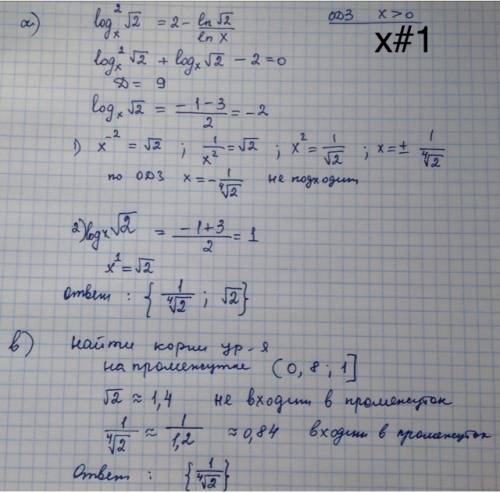 а) log²ₓ√2 = 2 - ln√2/ln x    ОДЗ x>0
x#1
log²ₓ√2 + logₓ√2 - 2 = 0
Д = 9
logₓ√2 = (-1-3)/2 = -2
1) x⁻² = √2 ; 1/x² = √2 ; x² = 1/√2 ; x = ± 1/⁴√2
по ОДЗ x = - 1/⁴√2 не подходит
2) logₓ√2 = (-1+3)/2 = 1
x¹ = √2
Ответ : { 1/⁴√2 ; √2 }
в) найти корни ур-я
на промежутке (0,8 ; 1]
√2 ≈ 1,4 не входит в промежуток
1/⁴√2 ≈ 1/1,2 ≈ 0,84 входит в промежуток
Ответ : { 1/⁴√2 }